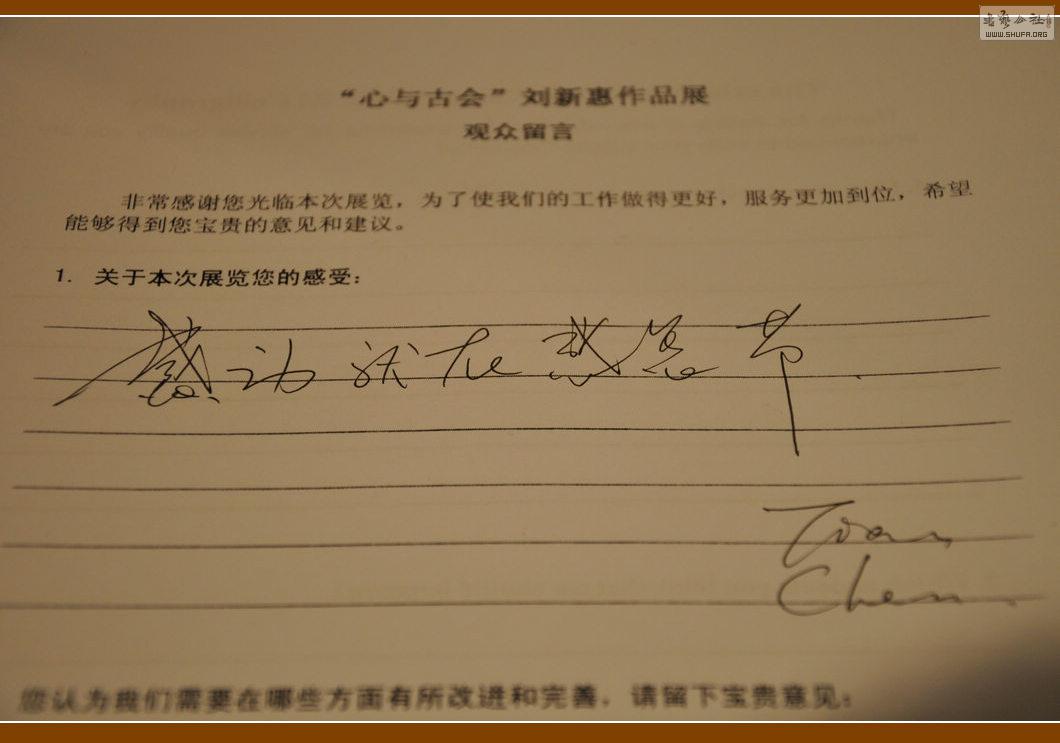 书艺公社
WWW.SHUFA.ORG
“心与古会”刘新惠作品展
观众留言
非常感谢您光临本次展览，为了使我们的工作做得更好，服务更加到位，希望
能够得到您宝贵的意见和建议。
1. 关于本次展览您的感受：
感动就在感恩节.
Chen
您认为我们需要在哪些方面有所改进和完善，请留下宝贵意见：